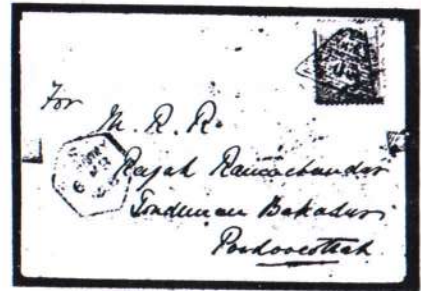 For
M. R. Ry
Rajah Ramachandar
Tondiman Bahadur
Poodoocottah.